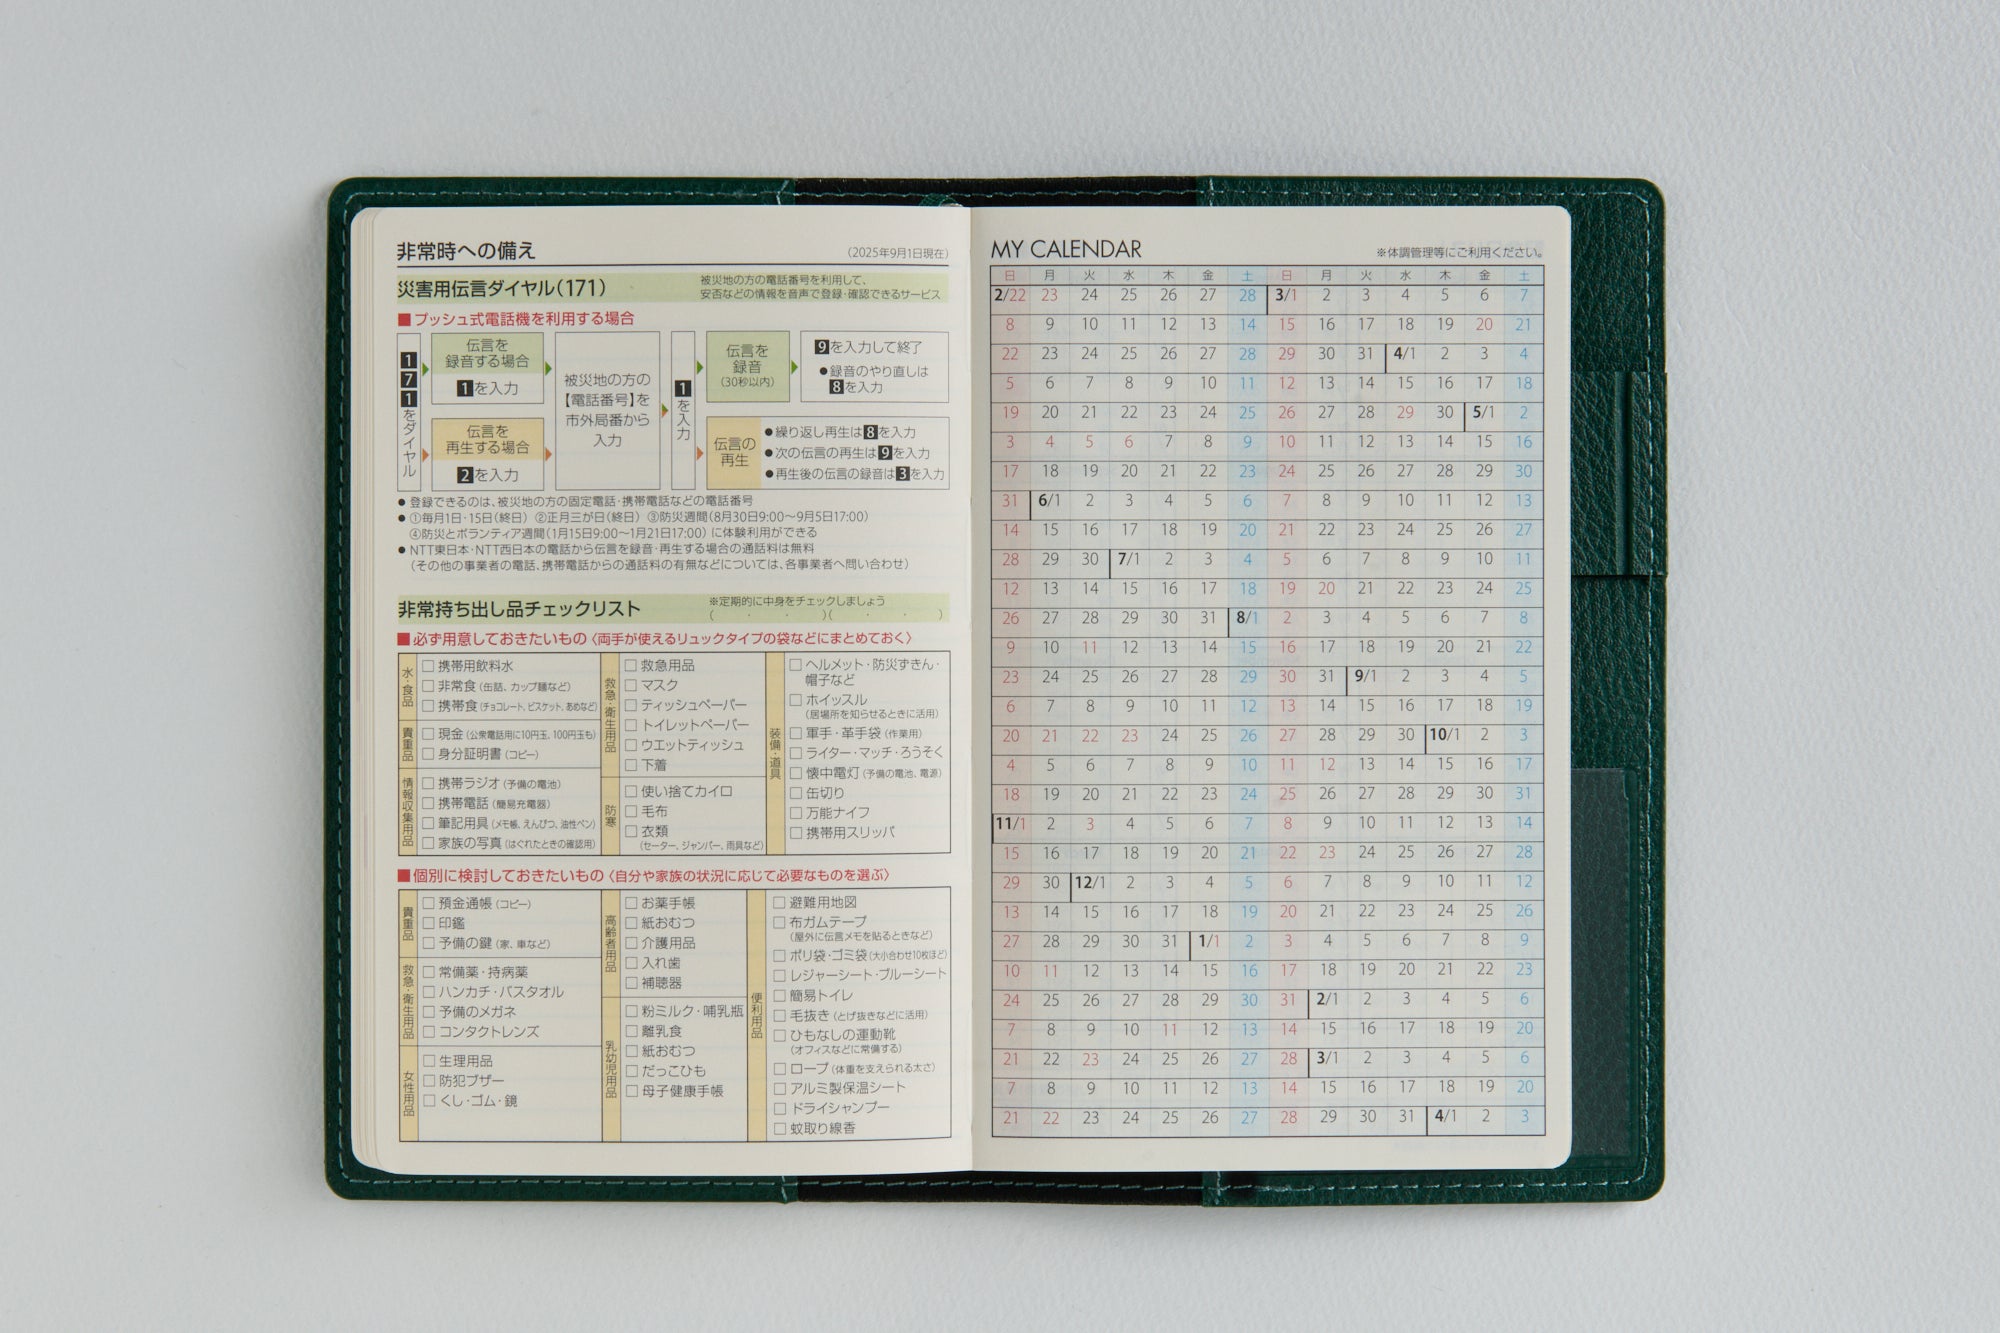 非常時への備え
(2025年9月1日現在)
災害用伝言ダイヤル(171)
被災地の方の電話番号を利用して、
安否などの情報を音声で登録・確認できるサービス
■プッシュ式電話機を利用する場合
171をダイヤル
伝言を
録音する場合
1を入力
伝言を
再生する場合
2を入力
被災地の方の
【電話番号】を
市外局番から
入力
1を入力
伝言を
録音
(30秒以内)
9を入力して終了
●録音のやり直しは
8を入力
伝言の
再生
●繰り返し再生は8を入力
●次の伝言の再生は9を入力
●再生後の伝言の録音は3を入力
●登録できるのは、被災地の方の固定電話・携帯電話などの電話番号
●①毎月1日・15日(終日) ②正月三が日(終日) ③防災週間(8月30日9:00〜9月5日17:00)
④防災とボランティア週間(1月15日9:00〜1月21日17:00) に体験利用ができる
●NTT東日本・NTT西日本の電話から伝言を録音・再生する場合の通話料は無料
(その他の事業者の電話、携帯電話からの通話料の有無などについては、各事業者へ問い合わせ)
非常持ち出し品チェックリスト
※定期的に中身をチェックしましょう
( ・ ・ )( ・ ・ )
■必ず用意しておきたいもの〈両手が使えるリュックタイプの袋などにまとめておく〉
水・食品
□携帯用飲料水
□非常食(缶詰、カップ麺など)
□携帯食(チョコレート、ビスケット、あめなど)
貴重品
□現金(公衆電話用に10円玉、100円玉も)
□身分証明書(コピー)
情報収集用品
□携帯ラジオ(予備の電池)
□携帯電話(簡易充電器)
□筆記用具(メモ帳、えんぴつ、油性ペン)
□家族の写真(はぐれたときの確認用)
救急・衛生用品
□救急用品
□マスク
□ティッシュペーパー
□トイレットペーパー
□ウエットティッシュ
□下着
防寒
□使い捨てカイロ
□毛布
□衣類
(セーター、ジャンパー、雨具など)
装備・道具
□ヘルメット・防災ずきん・
帽子など
□ホイッスル
(居場所を知らせるときに活用)
□軍手・革手袋(作業用)
□ライター・マッチ・ろうそく
□懐中電灯(予備の電池、電源)
□缶切り
□万能ナイフ
□携帯用スリッパ
■個別に検討しておきたいもの〈自分や家族の状況に応じて必要なものを選ぶ〉
貴重品
□預金通帳(コピー)
□印鑑
□予備の鍵(家、車など)
救急・衛生用品
□常備薬・持病薬
□ハンカチ・バスタオル
□予備のメガネ
□コンタクトレンズ
女性用品
□生理用品
□防犯ブザー
□くし・ゴム・鏡
高齢者用品
□お薬手帳
□紙おむつ
□介護用品
□入れ歯
□補聴器
乳幼児用品
□粉ミルク・哺乳瓶
□離乳食
□紙おむつ
□だっこひも
□母子健康手帳
便利用品
□避難用地図
□布ガムテープ
(屋外に伝言メモを貼るときなど)
□ポリ袋・ゴミ袋(大小合わせ10枚ほど)
□レジャーシート・ブルーシート
□簡易トイレ
□毛抜き(とげ抜きなどに活用)
□ひもなしの運動靴
(オフィスなどに常備する)
□ロープ(体重を支えられる太さ)
□アルミ製保温シート
□ドライシャンプー
□蚊取り線香
MY CALENDAR
※体調管理等にご利用ください。
日 月 火 水 木 金 土 日 月 火 水 木 金 土
2/22 23 24 25 26 27 28 3/1 2 3 4 5 6 7
8 9 10 11 12 13 14 15 16 17 18 19 20 21
22 23 24 25 26 27 28 29 30 31 4/1 2 3 4
5 6 7 8 9 10 11 12 13 14 15 16 17 18
19 20 21 22 23 24 25 26 27 28 29 30 5/1 2
3 4 5 6 7 8 9 10 11 12 13 14 15 16
17 18 19 20 21 22 23 24 25 26 27 28 29 30
31 6/1 2 3 4 5 6 7 8 9 10 11 12 13
14 15 16 17 18 19 20 21 22 23 24 25 26 27
28 29 30 7/1 2 3 4 5 6 7 8 9 10 11
12 13 14 15 16 17 18 19 20 21 22 23 24 25
26 27 28 29 30 31 8/1 2 3 4 5 6 7 8
9 10 11 12 13 14 15 16 17 18 19 20 21 22
23 24 25 26 27 28 29 30 31 9/1 2 3 4 5
6 7 8 9 10 11 12 13 14 15 16 17 18 19
20 21 22 23 24 25 26 27 28 29 30 10/1 2 3
4 5 6 7 8 9 10 11 12 13 14 15 16 17
18 19 20 21 22 23 24 25 26 27 28 29 30 31
11/1 2 3 4 5 6 7 8 9 10 11 12 13 14
15 16 17 18 19 20 21 22 23 24 25 26 27 28
29 30 12/1 2 3 4 5 6 7 8 9 10 11 12
13 14 15 16 17 18 19 20 21 22 23 24 25 26
27 28 29 30 31 1/1 2 3 4 5 6 7 8 9
10 11 12 13 14 15 16 17 18 19 20 21 22 23
24 25 26 27 28 29 30 31 2/1 2 3 4 5 6
7 8 9 10 11 12 13 14 15 16 17 18 19 20
21 22 23 24 25 26 27 28 3/1 2 3 4 5 6
7 8 9 10 11 12 13 14 15 16 17 18 19 20
21 22 23 24 25 26 27 28 29 30 31 4/1 2 3